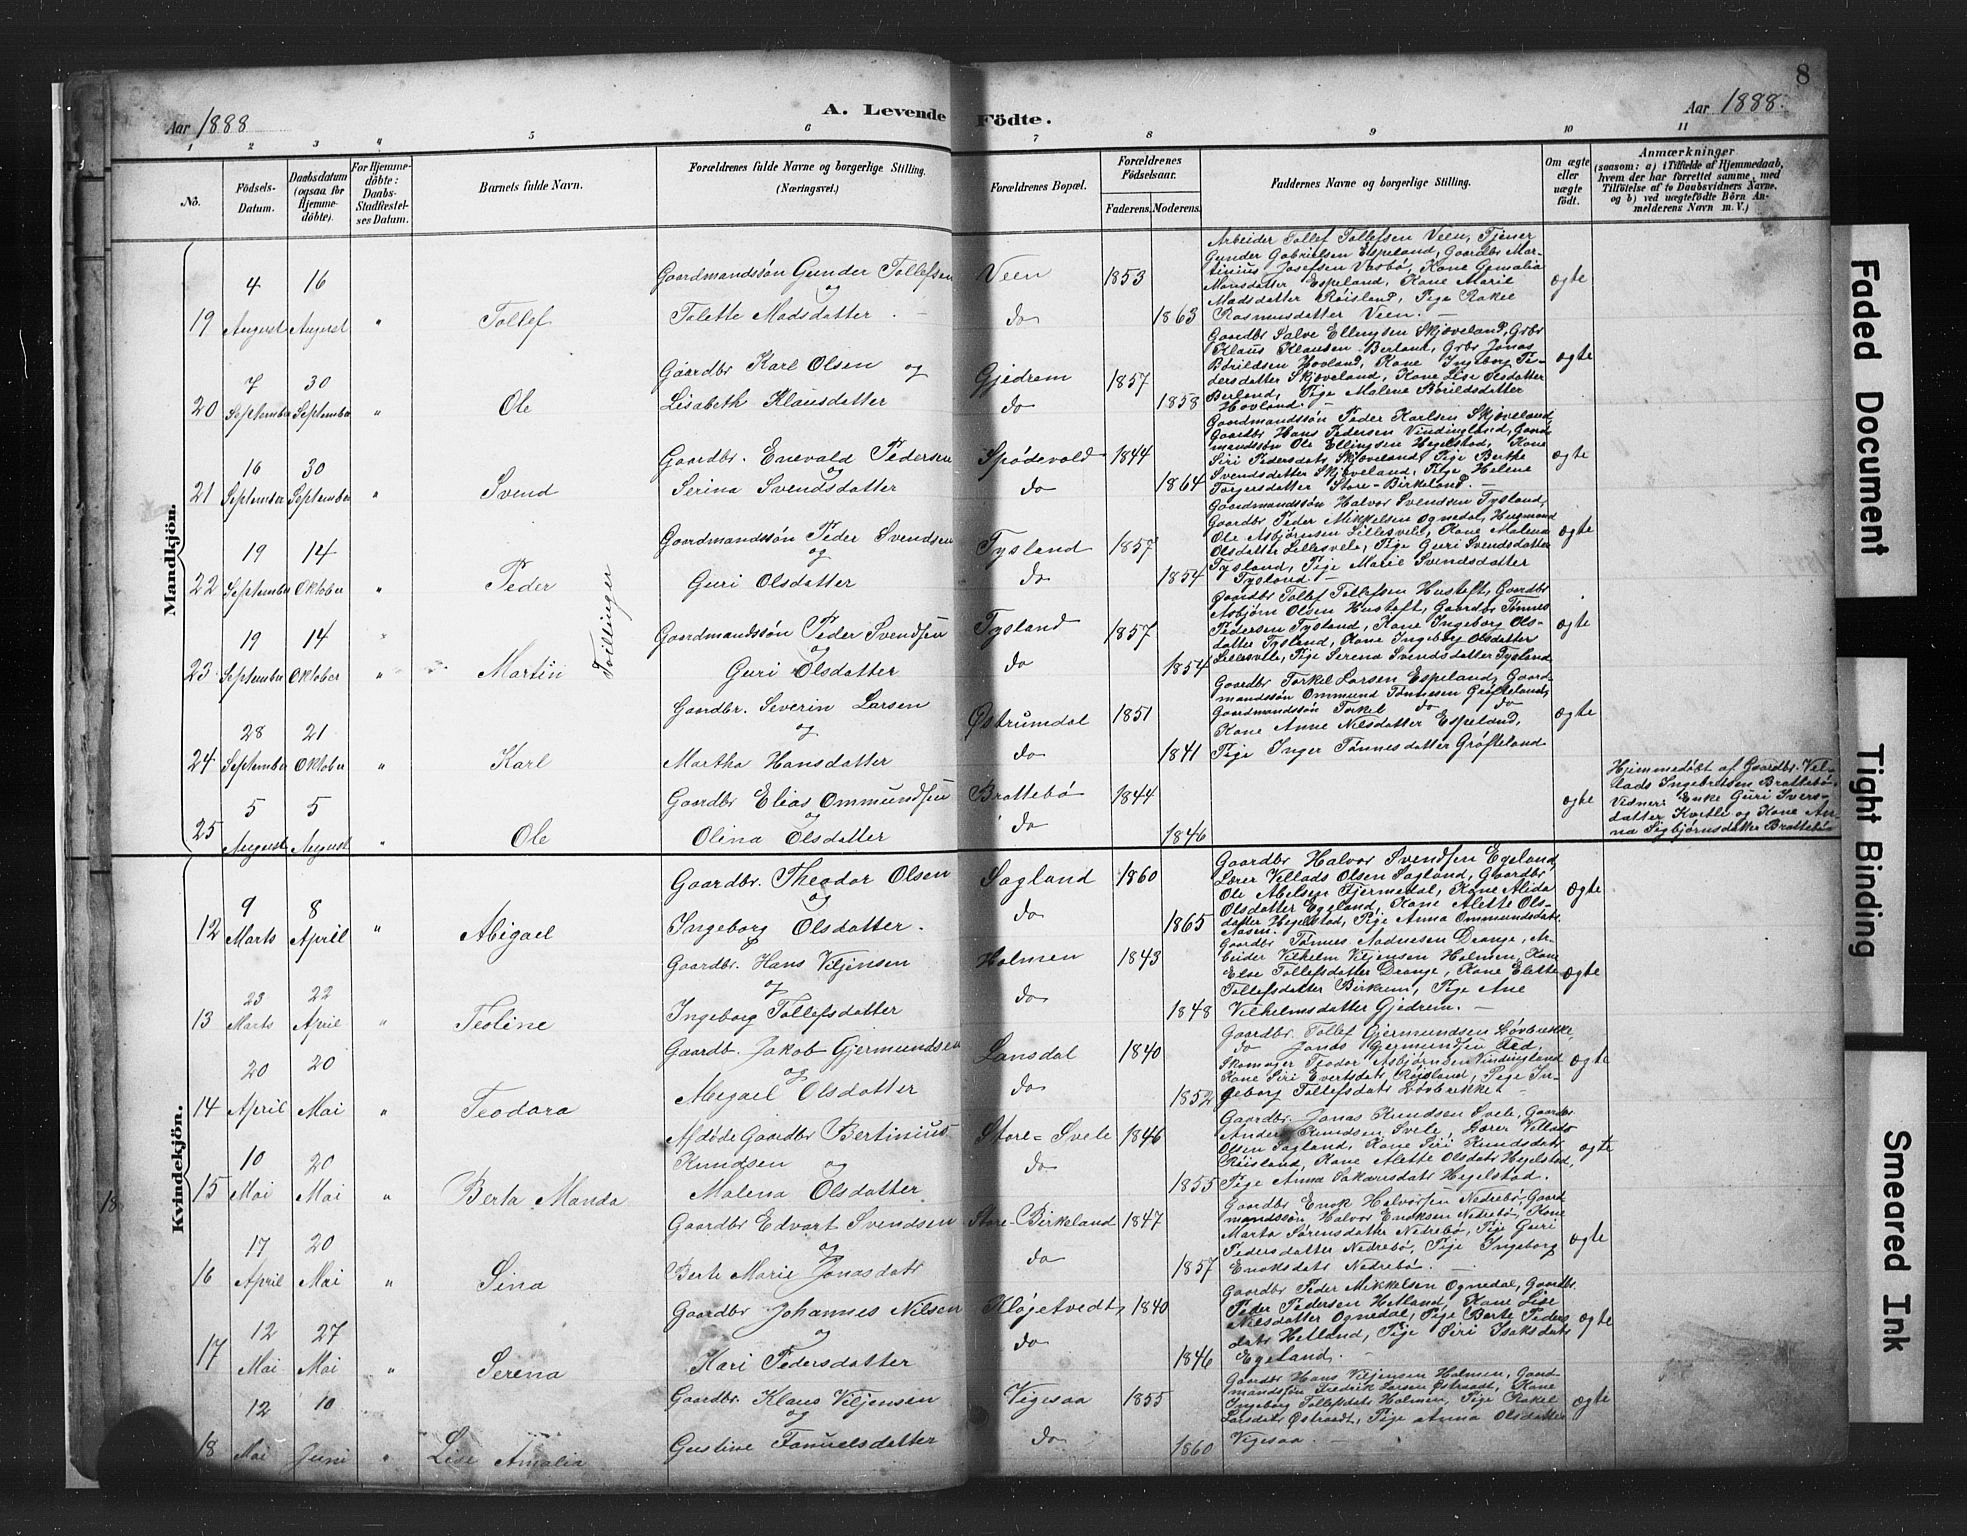 8
Aar 1888
A. Levende Födte.
Aar 1888.
1 2 3 4 5 6 7 8 9 10 11
No.
Födsels-
Datum.
Daabsdatum
(ogsaa for
Hjemme-
döbte).
For Hjemme-
döbte:
Daabs-
Stadfæstel-
ses Datum.
Barnets fulde Navn.
Forældrenes fulde Navne og borgerlige Stilling.
(Næringsvei.)
Forældrenes Bopæl.
Forældrenes
Födselsaar.
Faderens. Moderens.
Faddernes Navne og borgerlige Stilling.
Om ægte
eller
uægte
födt.
Anmærkninger
(saasom: a) i Tilfælde af Hjemmedaab,
hvem der har forrettet samme, med
Tilföielse af to Daabsvidners Navne,
og b) ved uægtefödte Börn An-
melderens Navn m. V.)
Mandkjön.
19
4 August
16 August
"
Tollef
Gaardmandssön Gunder Tollefsen
og
Tolette Madsdatter
Veen
do
1853
1863
Arbeider Tollef Tollefsen Veen, Tjener
Gunder Gabrielsen Espeland, Gaardbr Mar-
tinius Josefsen Vasbø, Kone Gemalia
Monsdatter Espeland, Kone Marie
Madsdatter Røisland, Pige Rakel
Rasmusdatter Veen.
ægte
20
7 September
30 September
"
Ole
Gaardbr Karl Olsen og
Lisabeth Klausdatter
Gjedrem
do
1857
1858
Gaardbr Salve Ellingsen Skjæveland, Grbr
Klaus Klausen Berland, Grbr Jonas
Børildsen Hovland, Kone Ingeborg Pe-
dersdatter Skjæveland, Kone Lise
Berland, Pige Malene Børildsdatter
Hovland.
ægte
21
16 September
30 September
"
Svend
Gaardbr. Enevald Pedersen
og
Serina Svendsdatter
Spødevold
do
1844
1864
Gaardmandssøn Peder Karlsen Skjæveland
Gaardbr Hans Pedersen Vindingland, Gaard-
mandssøn Ole Ellingsen Hegelstad, Kone
Siri Pedersdatr Skjæveland, Pige Berthe
Svendsdatter Skjæveland, Pige Helene
Torgersdatter Store-Birkeland.
ægte
22
19 September
14 Oktober
"
Peder
Tvillinger
Gaardmandssön Peder Svendsen
og
Guri Olsdatter
Tysland
do
1857
1854
Gaardmandssøn Halvor Svendsen Tysland,
Gaardbr Peder Mikkelsen Ognedal, Husmand
Ole Asbjørnsen Lillesvele, Kone Malena
Olsdatter Lillesvele, Pige Guri Svendsdatter
Tysland, Pige Marie Svendsdatter
Tysland
ægte
23
19 September
14 Oktober
"
Martin
Gaardmandssön Peder Svendsen
og
Guri Olsdatter
Tysland
do
1857
1854
Gaardbr Tollef Tollefsen Hustoft, Gaardbr
Asbjørn Olsen Hustoft, Gaardbr Tønnes
Pedersen Tysland, Kone Ingeborg Ols-
datter Tysland, Kone Ingeborg Olsdatter
Lillesvele, Pige Serena Svendsdatter Tysland
ægte
24
28 September
21 Oktober
"
Karl
Gaardbr. Severin Larsen
og
Martha Hansdatter
Østrumdal
do
1851
1841
Gaardbr Torkel Larsen Espeland, Gaard-
mandssøn Ommund Tønnesen Grøfteland,
Gaardmandssøn Torkel do do
Kone Anne Nilsdatter Espeland,
Pige Inger Tønnesdatter Grøfteland
ægte
25
5 August
5 August
"
Ole
Gaardbr Elias Ommundsen
og
Olina Olsdatter
Brattebø
do
1844
1846
ægte
Hjemmedøbt af Gaardbr. Vil-
lads Ingebretsen Brattebø.
Vidner: Enke Guri Ivers-
datter Kvitle og Kone An-
na Sigbjørnsdatter Brattebø
Kvindekjön.
12
9 Marts
8 April
"
Abigael
Gaardbr. Theodor Olsen
og
Ingeborg Olsdatter.
Sagland
do
1860
1865
Gaardbr Halvor Svendsen Egeland,
Lærer Villads Olsen Sagland, Gaardbr
Ole Abelsen Fjermedal, Kone Alida
Olsdatter Egeland, Kone Alette Ols-
datter Hegelstad, Pige Anna Ommundsdatr
Aasen.
ægte
13
23 Marts
22 April
"
Teoline
Gaardbr. Hans Viljensen
og
Ingeborg Tollefsdatter
Holmen
do
1843
1848
Gaardbr Tønnes Aadnesen Drange, Ar-
beider Vilhelm Viljensen Holmen, Kone
Else Tollefsdatter Drange, Kone Elette
Tollefsdatter Birkem, Pige Ane
Vilhelmsdatter Gjedrem.
ægte
14
20 April
20 Mai
"
Teodora
Gaardb. Jakob Gjermundsen
og
Abigael Olsdatter
Lansdal
do
1840
1852
Gaardbr. Tollef Gjermundsen Løvbrekke,
do Jonas Gjermundsen
Skomager Teodor Asbjørnsen Vindingland
Kone Siri Evertsdatr Røisland, Pige In-
geborg Tollefsdatr Løvbrekke
ægte
15
10 Mai
20 Mai
"
Berta Manda
Afdøde Gaardbr Bertinius
Knudsen og
Malena Olsdatter
Store-Svele
do
1846
1855
Gaardbr. Jonas Knudsen Svele, Gaardbr
Anders Knudsen Svele, Lærer Villads
Olsen Sagland, Kone Siri Knudsdatr
Røisland, Kone Alette Olsdatr Hegelstad,
Pige Anna Hegelstad.
ægte
16
17 April
20 Mai
"
Sina
Gaardbr Edvart Svendsen
og
Berte Marie Jonasdatr
Store-Birkeland
do
1847
1857
Gaardbr Enok Halvorsen Nedrebø, Gaard-
mandssøn Halvor Enoksen Nedrebø, Kone
Marta Sørensdatter Nedrebø, Pige Guri
Pedersdatter Nedrebø, Pige Ingeborg
Enoksdatr Nedrebø.
ægte
17
12 Mai
27 Mai
"
Serena
Gaardbr Johannes Nilsen
og
Kari Pedersdatter
Kløgetvedt
do
1840
1846
Gaardbr Peder Mikkelsen Ognedal, Gaardbr.
Peder Pedersen Hetland, Kone Lise
Nilsdatter Ognedal, Pige Berte Peders-
datr Hetland, Pige Siri Isaksdatr
Egeland.
ægte
18
12 Mai
10 Juni
"
Lise Amalia
Gaardbr. Klaus Viljensen
og
Gustine Fanuelsdatter
Vigesaa
do
1855
1860
Gaardbr Hans Viljensen Holmen, Gaard-
mandssøn Fredrik Larsen Østraadt, Kone
Ingeborg Tollefsdatr Holmen, Pige Rakel
Larsdatr Østraadt, Pige Anna Olsdatter
Vigesaa
ægte
18
Faded Document
Tight Binding
Smeared Ink